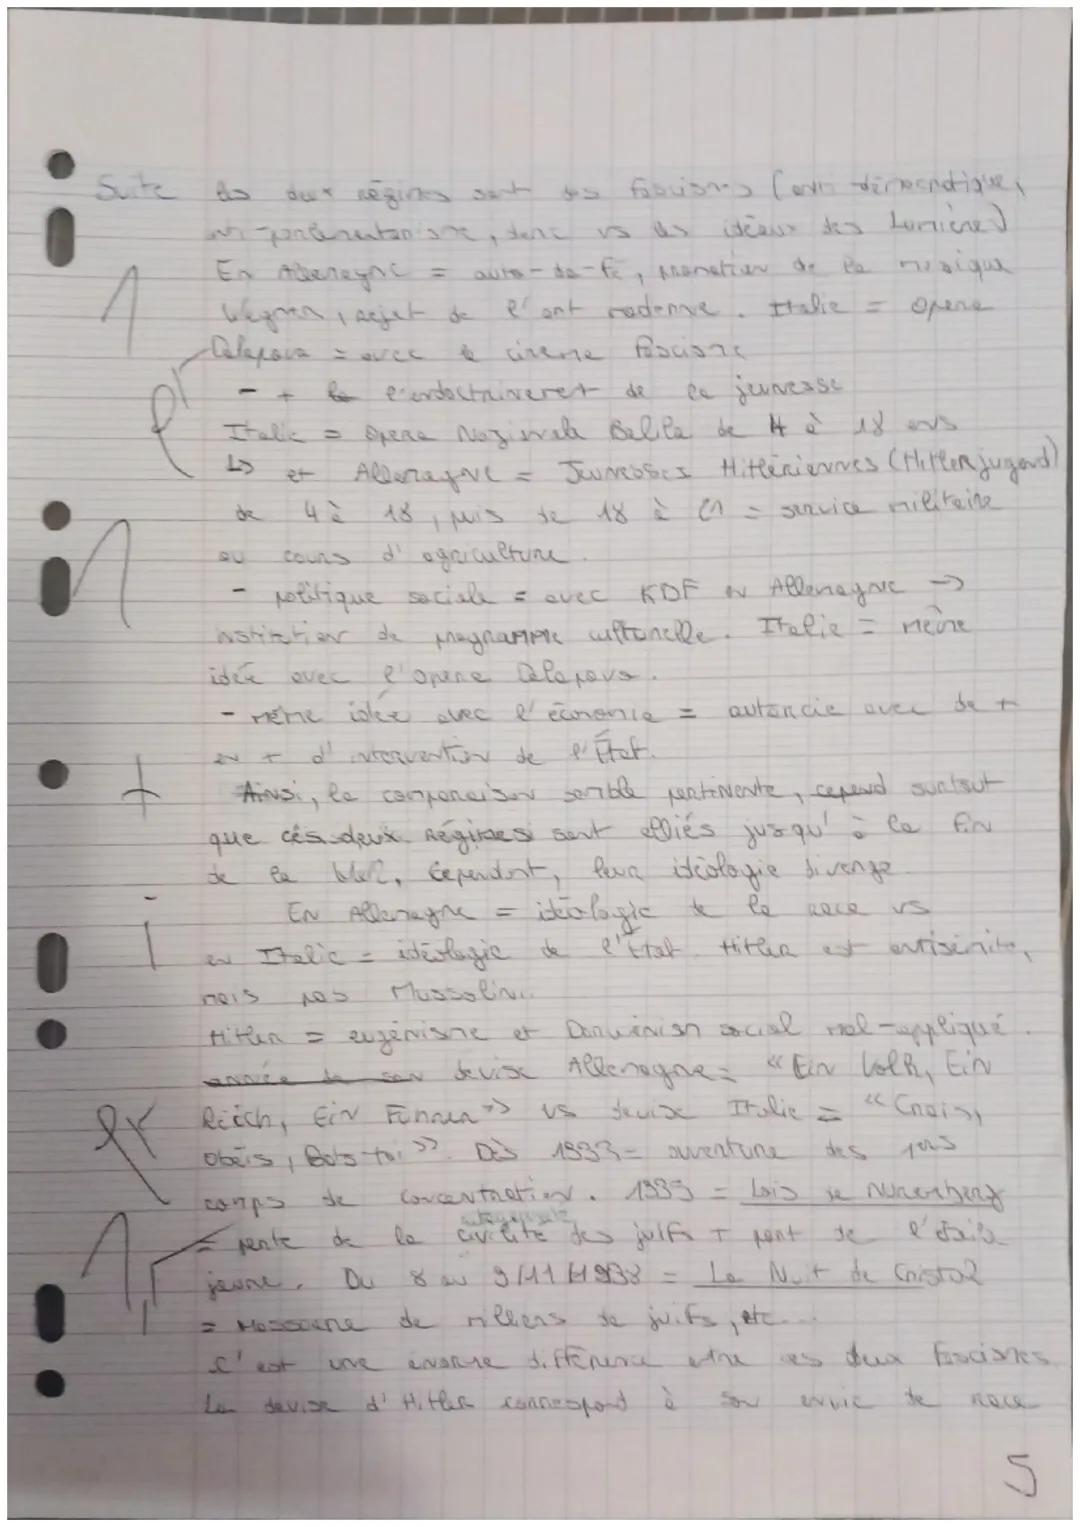 Suite les deux régimes sont des fascismes (anti démocratique,
anti-parlementarisme, donc vs les idéaux des Lumières)
En Allemagne = auto-da-fé, promotion de la musique
Wagner, rejet de l'art moderne. Italie = Opera
Dolapova = avec le cinéma fasciste
- + l'endoctrinement de la jeunesse
Italie = Opera Nazionale Balila de 4 à 18 ans
↳ et Allemagne = Jeunesses Hitlériennes (Hitlerjugend)
de 4 à 18, puis de 18 à 21 = service militaire
ou cours d'agriculture.
- politique sociale = avec KDF en Allemagne →
institution de programme culturelle. Italie = même
idée avec l'opera Dolapova.
- même idée avec l'économie = autarcie avec de +
en + d'intervention de l'État.
Ainsi, la comparaison semble pertinente, surtout
que ces deux régimes sont alliés jusqu'à la fin
de la WW2, cependant, leur idéologie diverge.
En Allemagne = idéologie de la race vs
en Italie = idéologie de l'État. Hitler est antisémite,
mais pas Mussolini.
Hitler = eugénisme et Darwinism social mal-appliqué.
devise Allemagne = « Ein Volk, Ein
Reich, Ein Fuhrer » vs devise Italie = « Crois,
Obéis, Bats-toi ». Dès 1933 = ouverture des 1ers
camps de concentration. 1935 = Lois de Nuremberg
= perte de la citoyenneté des juifs + port de l'étoile
jaune. Du 8 au 9/11/1938 = La Nuit de Cristal
= Massacre de milliers de juifs, etc...
C'est une énorme différence entre ces deux fascismes.
La devise d'Hitler correspond à son envie de race
5